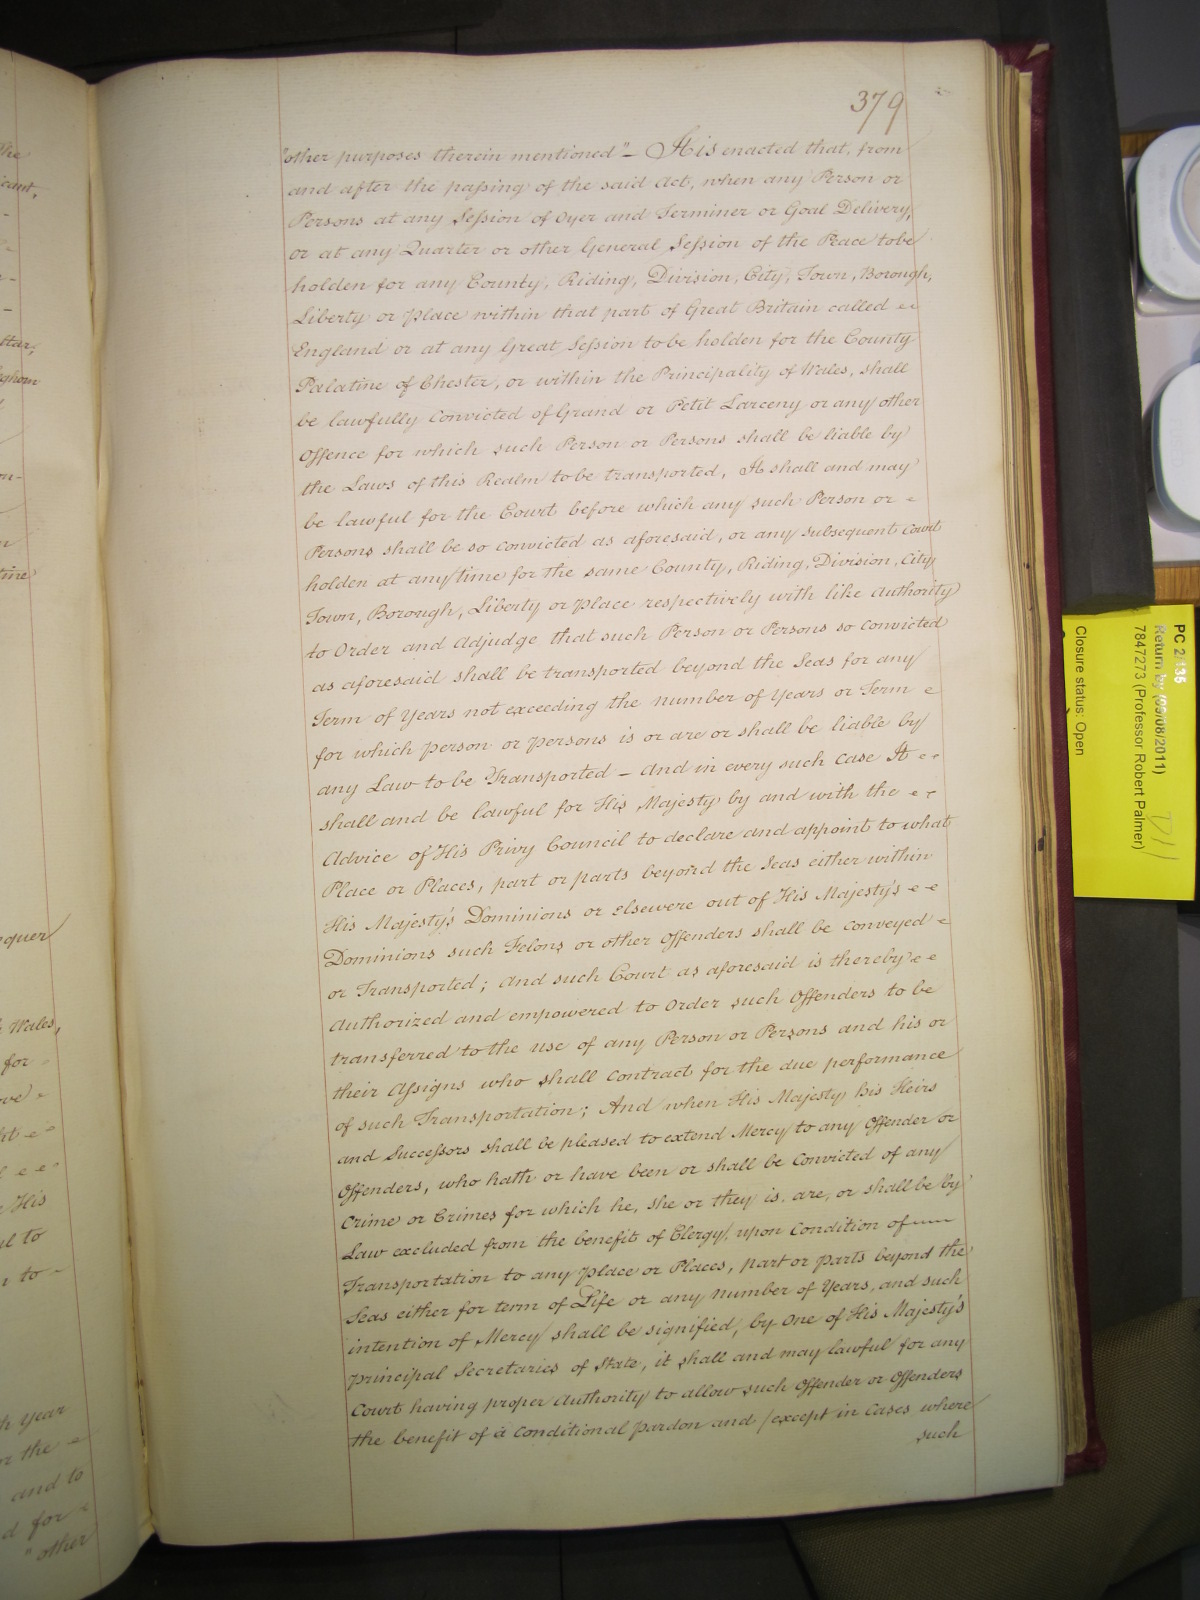 379
"other purposes therein mentioned" – It is enacted that, from
and after the passing of the said Act, when any Person or
Persons at any Session of Oyer and Terminer or Goal Delivery,
or at any Quarter or other General Session of the Peace to be
holden for any County, Riding, Division, City, Town, Borough,
Liberty or place within that part of Great Britain called
England or at any Great Session to be holden for the County
Palatine of Chester, or within the Principality of Wales, shall
be lawfully Convicted of Grand or Petit Larceny or any other
Offence for which such Person or Persons shall be liable by
the Laws of this Realm to be transported, It shall and may
be lawful for the Court before which any such Person or
Persons shall be so convicted as aforesaid, or any subsequent Court
holden at any time for the same County, Riding, Division, City
Town, Borough, Liberty or place respectively with like Authority
to Order and Adjudge that such Person or Persons so Convicted
as aforesaid shall be transported beyond the Seas for any
Term of Years not exceeding the Number of Years or Term
for which person or persons is or are or shall be liable by
any Law to be Transported – And in every such case It
shall and be lawful for His Majesty by and with the
Advice of His Privy Council to declare and appoint to what
Place or Places, part or parts beyond the Seas either within
His Majesty's Dominions or elsewere out of His Majesty's
Dominions such Felons or other Offenders shall be conveyed
or Transported; And such Court as aforesaid is thereby
Authorized and empowered to Order such Offenders to be
transferred to the use of any Person or Persons and his or
their Assigns who shall Contract for the due performance
of such Transportation; And when His Majesty his Heirs
and Successors shall be pleased to extend Mercy to any Offender or
Offenders, who hath or have been or shall be Convicted of any
Crime or Crimes for which he, she or they is, are, or shall be by
Law excluded from the benefit of Clergy, upon Condition of
Transportation to any place or Places, part or parts beyond the
Seas either for term of Life or any Number of Years, and such
intention of Mercy shall be signified, by One of His Majesty's
principal Secretaries of State, it shall and may lawful for any
Court having proper Authority to allow such Offender or Offenders
the benefit of a Conditional pardon and (except in Cases where
such
the
icant,
quer
Wales,
for
His
to
to
year
the
and to
for
"other
PC 2/135
Return by (09/08/2011)
7847273 (Professor Robert Palmer)
Closure status: Open